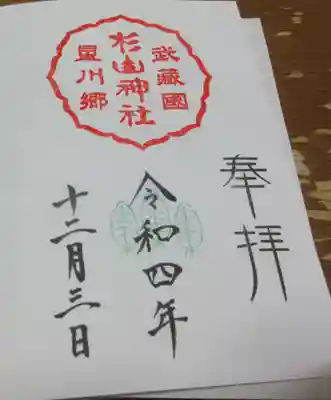 奉拝
武蔵國
杉山神社
星川郷
令和四年
十二月三日